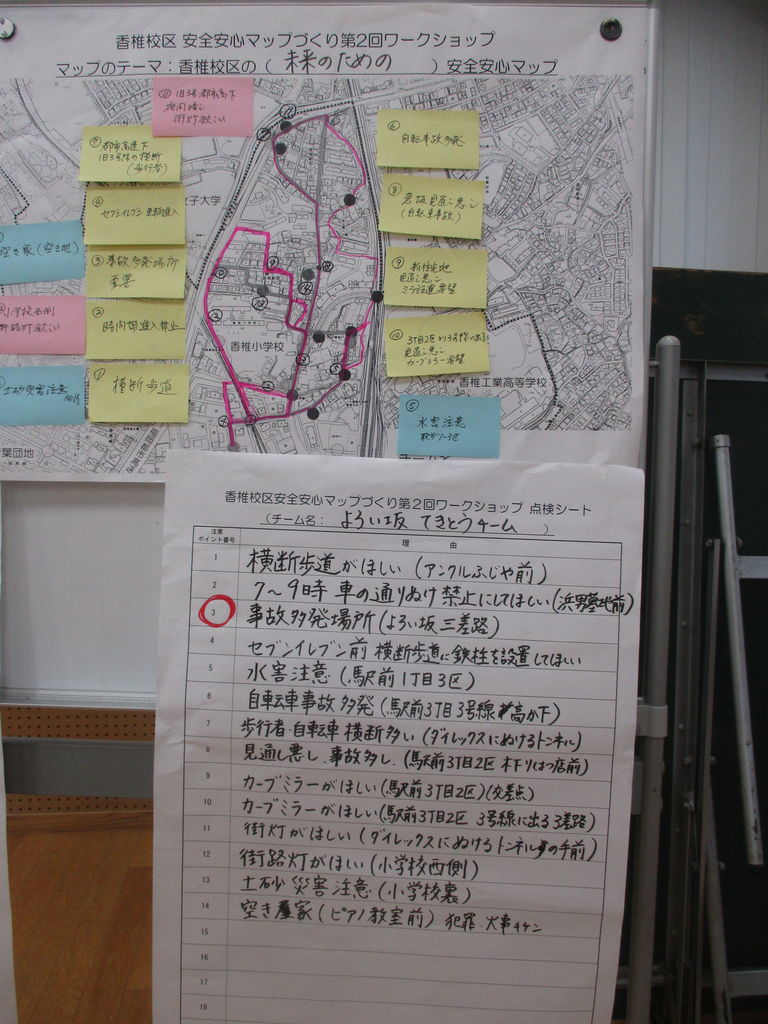 香椎校区 安全安心マップづくり第2回ワークショップ
マップのテーマ：香椎校区の（ 未来のための ）安全安心マップ
⑪旧3号都市高下
夜間暗し
街灯欲しい
⑦都市高速下
旧3号体の横断
(歩行者)
④セブンイレブン 車両進入
③事故多発場所
重要
②時間帯進入禁止
①横断歩道
空き家(空き地)
小学校西側
街路灯欲しい
土砂災害注意
⑥
自転車事故多発
⑧
急坂見直し悪し
(自転車事故)
⑨
新住宅地
見直し悪し
ミラー設置要望
⑩
3丁目2区より3号線に出る
見直し悪し
カーブミラー要望
⑤
水害注意
駅前1-3区
女子大学
香椎小学校
香椎工業高等学校
葉団地
香椎校区安全安心マップづくり第2回ワークショップ 点検シート
（チーム名： よろい坂 てきとうチーム ）
注意ポイント番号 理 由
1 横断歩道がほしい (アンクルふじや前)
2 7〜9時 車の通りぬけ禁止にしてほしい(浜男墓地前)
3 事故多発場所(よろい坂三差路)
4 セブンイレブン前 横断歩道に鉄柱を設置してほしい
5 水害注意(駅前1丁目3区)
6 自転車事故多発(駅前3丁目3号線高か下)
7 歩行者・自転車 横断多い(ダイレックスにぬけるトンネル)
8 見通し悪し、事故多し、(駅前3丁目2区 木下りはつ店前)
9 カーブミラーがほしい(駅前3丁目2区)(交差点)
10 カーブミラーがほしい(駅前3丁目2区 3号線に出る3差路)
11 街灯がほしい(ダイレックスにぬけるトンネルの手前)
12 街路灯がほしい(小学校西側)
13 土砂災害注意(小学校裏)
14 空き屋家(ピアノ教室前) 犯罪・火事キケン
15
16
17
18